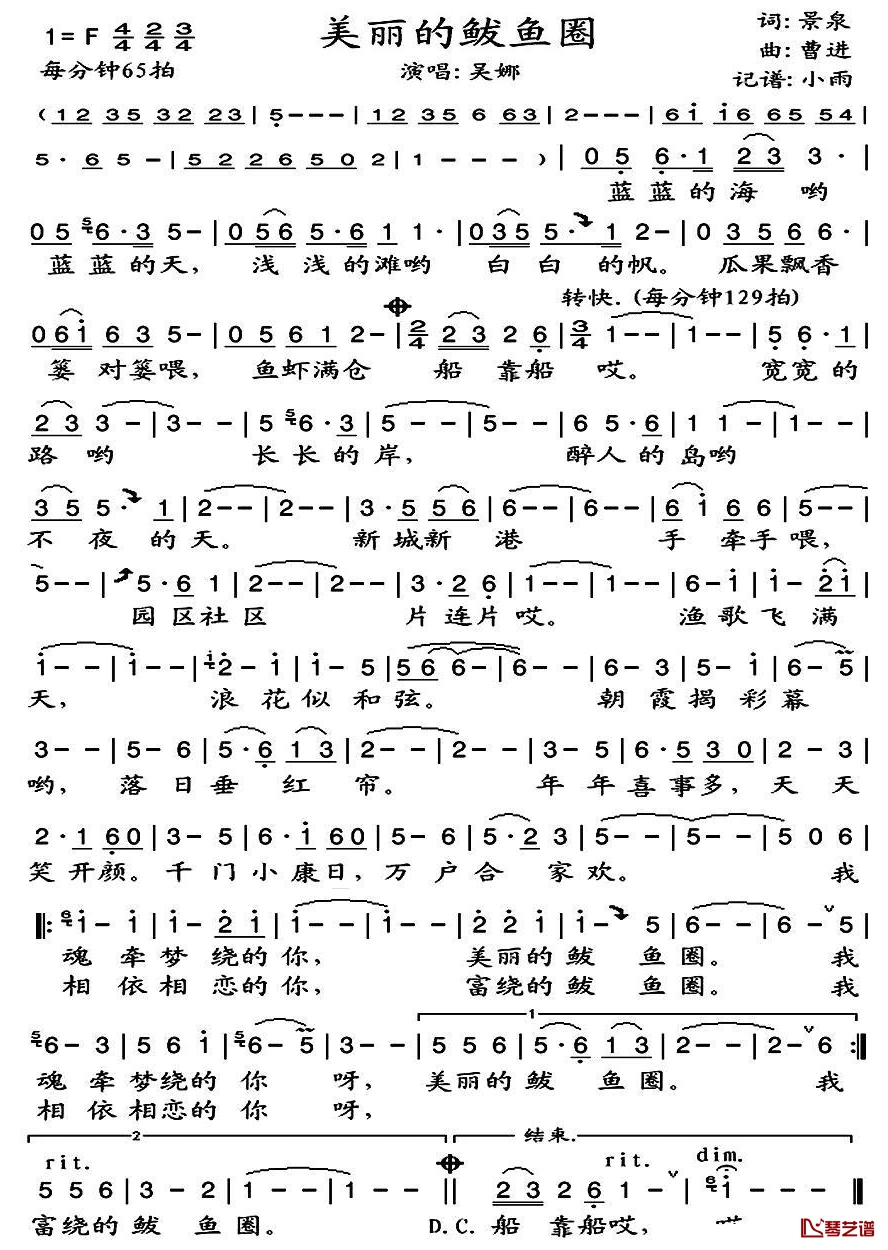 1=F 4/4 2/4 3/4
美丽的鲅鱼圈
词:景泉
每分钟65拍
演唱:吴娜
曲:曹进
记谱:小雨
(12 35 32 23|5---|12 35 6 63|2---|6i i6 65 54|
5· 6 5-|52 26 50 2|1 - - -)|05 6·1 23 3·|
蓝蓝的海 哟
05 56·3 5-|056 5·6 1 1·|035 5· 1 2-|0356 6·|
蓝蓝的天, 浅浅的滩哟 白白 的帆。 瓜果飘香
转快.(每分钟129拍)
061 63 5-|0561 2-|2/4 23 26|3/4 1--|1--|5 6·1|
篓 对篓喂, 鱼虾满仓 船 靠船 哎。 宽宽的
23 3-|3--|5 56·3|5--|5--|6 5·6|1 1-|1--|
路 哟 长长的岸, 醉人的岛哟
35 5· 1|2--|2--|3·5 56|6--|6--|6i 66|5--|
不 夜 的天。 新城新 港 手 牵手喂,
5--|5·6 1|2--|2--|3·2 6|1--|1--|6-i|i-2i|
园区社区 片连片哎。 渔歌飞 满
i--|i--|i2-i|i-5|56 6-|6--|6-3|5-i|6-5|
天, 浪花似和弦。 朝霞揭彩幕
3--|5-6|5·6 13|2--|2--|3-5|6·5 30|2-3|
哟, 落日垂 红 帘。 年年喜事多,天天
2·1 60|3-5|6·i 60|5-6|5·2 3|5--|5--|506|
笑开颜。千门小康日,万户合 家欢。 我
‖:6i-i|i-2i|i--|i--|2 22 i|i- 5|6--|6-5|
魂牵梦绕的你, 美丽的鲅 鱼圈。 我
相依相恋的你, 富绕的鲅 鱼圈。 我
1
56-3|56i|56-5|3--|556|5·6 13|2--|2-6:‖
魂牵梦绕的你 呀, 美丽的鲅 鱼圈。 我
相依相恋的你 呀,
2 结束.
rit. rit. dim.
556|3-2|1--|1--‖23 26 1-|6i--‖
富绕的鲅 鱼圈。 D.C.船 靠船哎,
琴艺谱